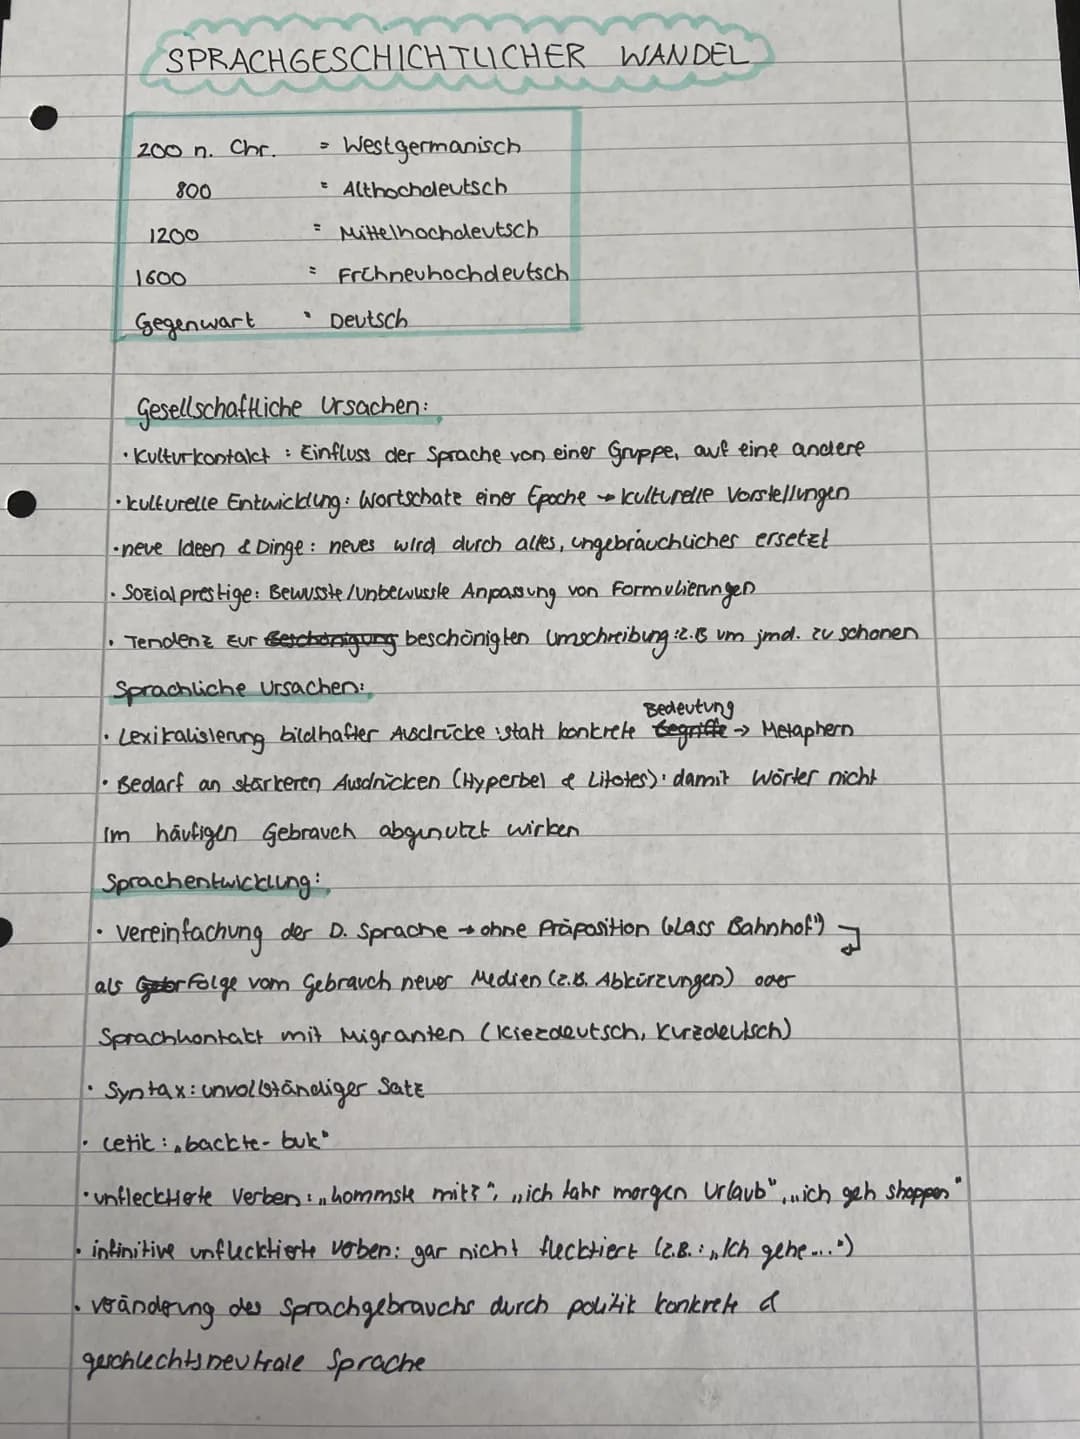 SPRACHGESCHICHTLICHER WANDEL
200 n. Chr. = Westgermanisch
800 = Althochdeutsch
1200 = Mittelhochdeutsch
1600 = Frühneuhochdeutsch
Gegenwart = Deutsch
Gesellschaftliche Ursachen:
• Kulturkontakt : Einfluss der Sprache von einer Gruppe, auf eine andere
• kulturelle Entwicklung: Wortschatz einer Epoche → kulturelle Vorstellungen
• neue Ideen & Dinge : neues wird durch altes, ungebräuchliches ersetzt
• Sozialprestige: Bewusste/Unbewusste Anpassung von Formulierungen
• Tendenz zur Beschönigung beschönigten Umschreibung: z.B um jmd. zu schonen
Sprachliche Ursachen:
Bedeutung
• Lexikalisierung bildhafter Ausdrücke : statt konkrete Begriffe → Metaphern
• Bedarf an stärkeren Ausdrücken (Hyperbel & Litotes): damit Wörter nicht
im häufigen Gebrauch abgenutzt wirken
Sprachentwicklung:
• Vereinfachung der D. Sprache → ohne Präposition ("Lass Bahnhof")
als Folge vom Gebrauch neuer Medien (z.B. Abkürzungen) oder
Sprachkontakt mit Migranten (Kiezdeutsch, Kurzdeutsch)
• Syntax: unvollständiger Satz
• „backte - buk"
• unflecktierte Verben: „kommste mit?", „ich fahr morgen Urlaub", „ich geh shoppen"
• infinitive unflecktierte Verben: gar nicht flecktiert (z.B.: „Ich gehe...")
• Veränderung des Sprachgebrauchs durch politik konkrete &
geschlechtsneutrale Sprache